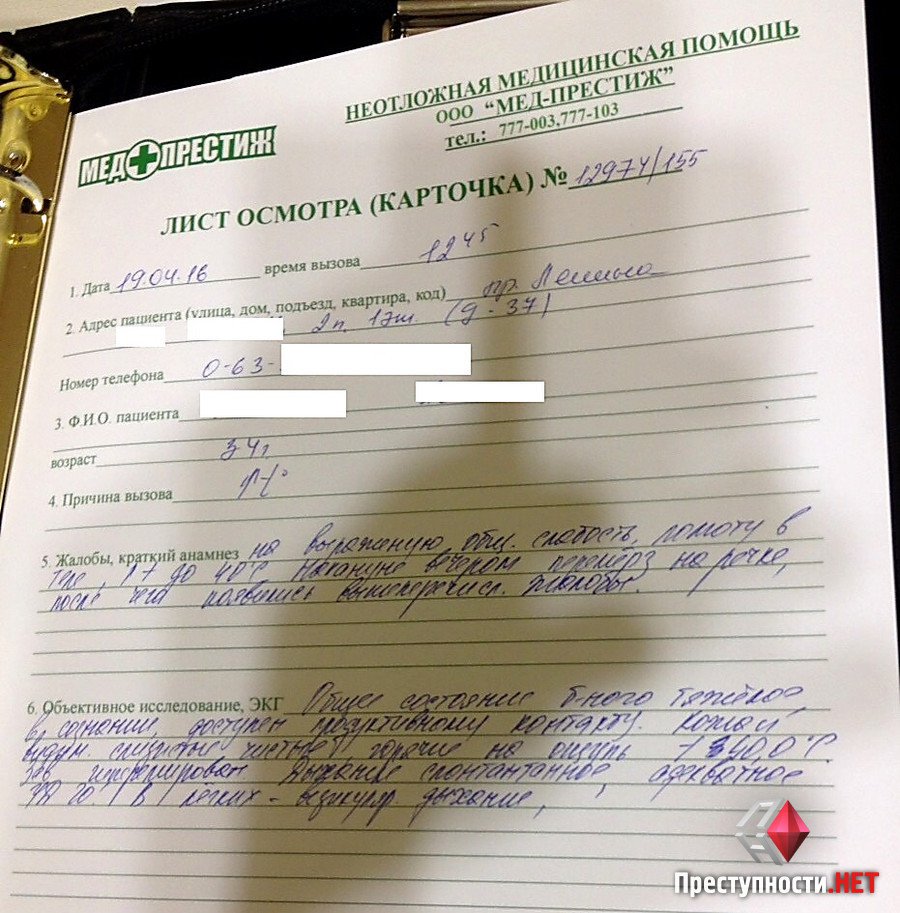 НЕОТЛОЖНАЯ МЕДИЦИНСКАЯ ПОМОЩЬ
ООО "МЕД-ПРЕСТИЖ"
тел.: 777-003,777-103
МЕД ПРЕСТИЖ
ЛИСТ ОСМОТРА (КАРТОЧКА) № 12974/155
1. Дата 19.04.16 время вызова 12 45
2. Адрес пациента (улица, дом, подъезд, квартира, код) пр. Ленина
2п. 1эт. (д-37)
Номер телефона 0-63-
3. Ф.И.О. пациента
возраст 34г
4. Причина вызова
5. Жалобы, краткий анамнез на выраженую общ. слабость, ломоту в
теле, до 40°С Накануне вечером перемёрз на речке,
после чего появились вышеперечисл. жалобы.
6. Объективное исследование, ЭКГ Общее состояние б-ного тяжёлое
В сознании, доступен продуктивному контакту. Кожа и
видим. слизистые чистые, горячие на ощупь 40,0°С
Зев гиперемирован Дыхание спонтантанное, адекватное
В легких - везикуляр. дыхание,
Преступности.НЕТ